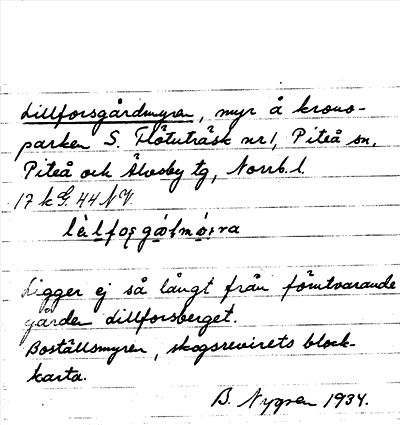 Lillforsgårdmyren, myr å krono-
parken S. Flötuträsk nr 1, Piteå sn,
Piteå och Älvsby tg, Norrb. l.
17 k G. 44 NV.
Ligger ej så långt från förutvarande
gården Lillforsberget.
Boställsmyren, skogsrevirets block-
karta.
B. Nygren 1934.